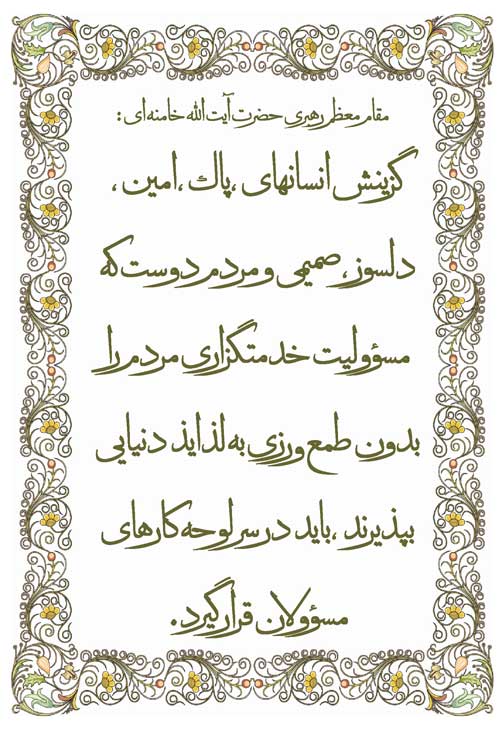 مقام معظم رهبری حضرت آیت الله خامنه ای :
گزینش انسانهای ،پاک ،امین ،
دلسوز، صمیمی و مردم دوست که
مسؤولیت خدمتگزاری مردم را
بدون طمع ورزی به لذایذ دنیایی
بپذیرند ،باید در سر لوحه کارهای
مسؤولان قرار گیرد.